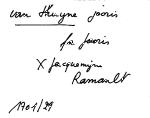 van Huuyne jooris
fa jooris
X jacquemijne
Ramault
1701/29